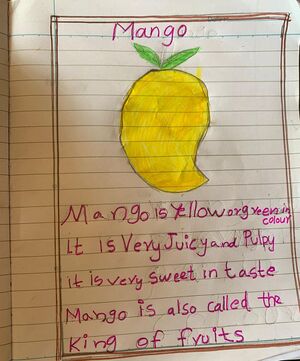 Mango
Mango is yellow or green in
colour
It is Very Juicy and Pulpy
it is very sweet in taste
Mango is also called the
King of fruits